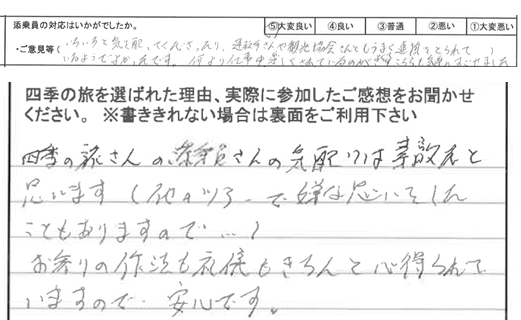 添乗員の対応はいかがでしたか。 ⑤大変良い ④良い ③普通 ②悪い ①大変悪い
・ご意見等( いろいろと気を配ってくださったり、運転手さんや観光協会さんともうまく連携をとられて )
いるようですが、何より仕事中楽しくされているのが
四季の旅を選ばれた理由、実際に参加したご感想をお聞かせ
ください。 ※書ききれない場合は裏面をご利用下さい
四季の旅さんの添乗員さんの気配りは素敵だと
思います(他のツアーで嫌な思いをした
こともありますので…)
お参りの作法も礼儀もきちんと心得られて
いますので、安心です。